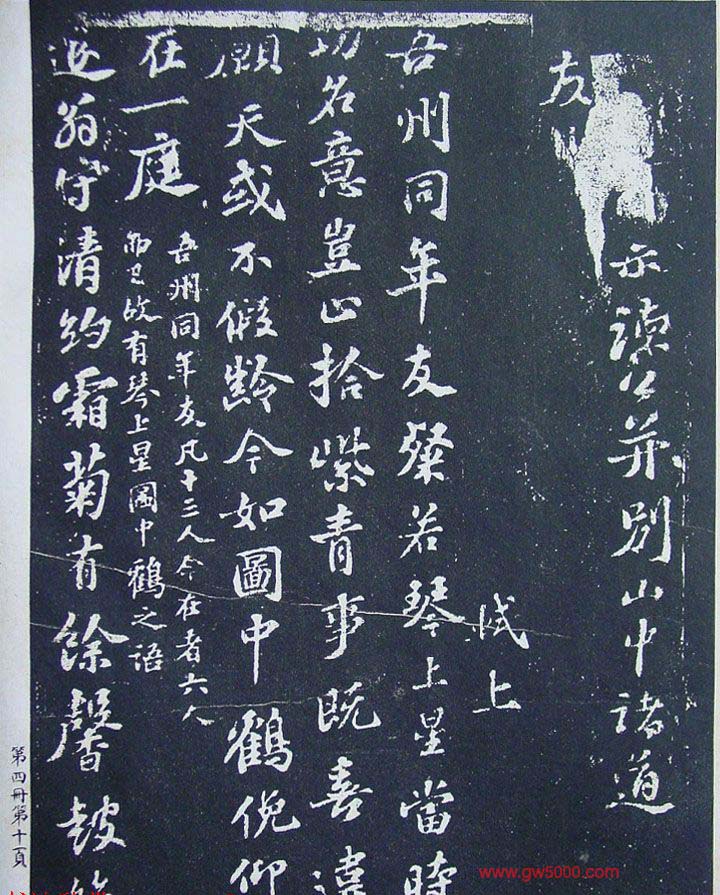 示讀公并別山中諸道
友
軾上
吾州同年友粲若琴上星當時
功名意豈止拾紫青事既喜違
願天或不假齡今如圖中鶴俛仰
在一庭
吾州同年友凡十三人今在者六人
而已故有琴上星圖中鶴之語
退翁守清約霜菊有餘馨鼓
第四冊第十一頁
www.gw5000.com